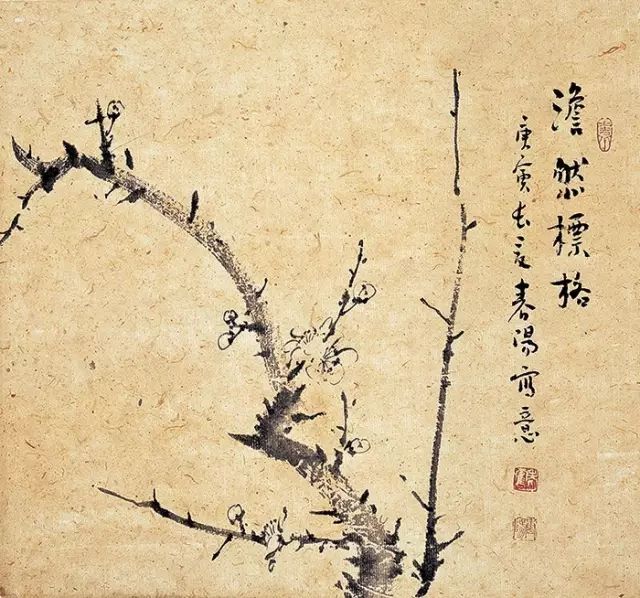 澹然標格
庚寅长夏春湯寫意